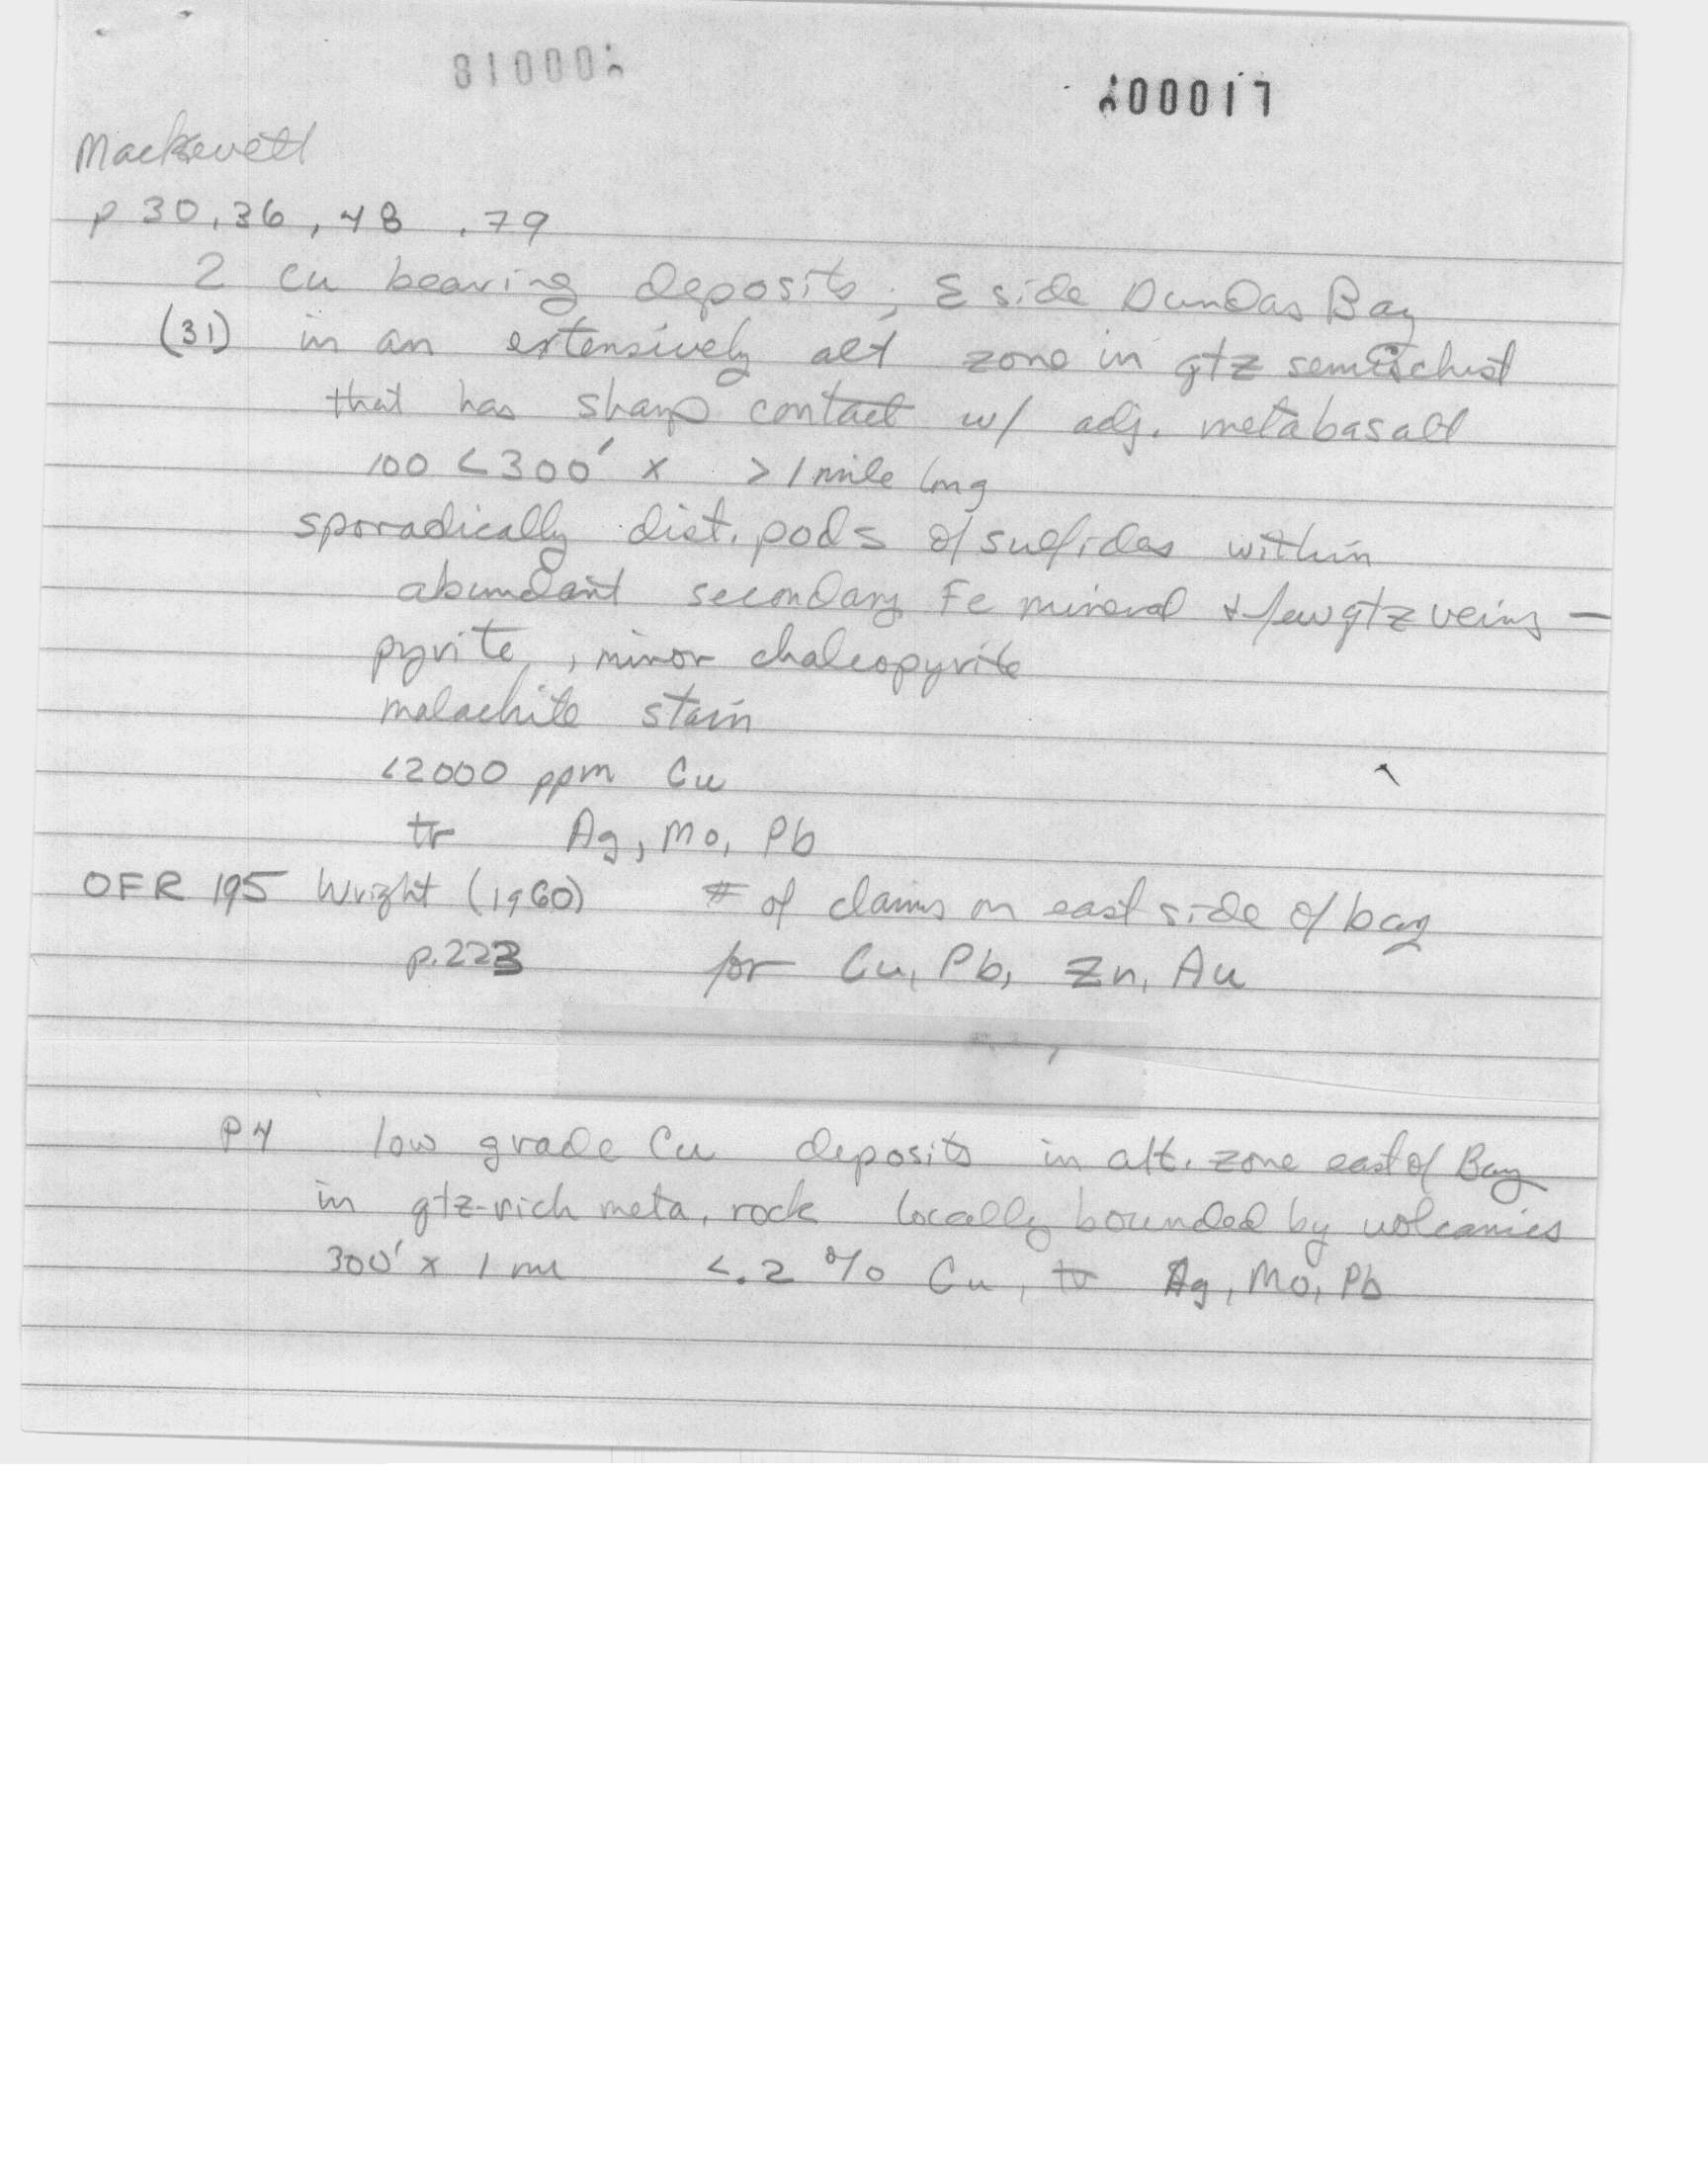 81000
00017
Mackevett
p 30, 36, 48, 79
2 Cu bearing deposits, E side Dundas Bay
(31) in an extensively alt zone in qtz semischist
that has sharp contact w/ adj. metabasalt
100 < 300' x > 1 mile long
sporadically dist. pods of sulfides within
abundant secondary Fe mineral + few qtz veins —
pyrite, minor chalcopyrite
malachite stain
<2000 ppm Cu
tr Ag, Mo, Pb
OFR 195 Wright (1960) # of claims on east side of bay
p.223 for Cu, Pb, Zn, Au
P4 low grade Cu deposits in alt. zone east of Bay
in qtz-rich meta. rock locally bounded by volcanics
300' x 1 mi <.2 % Cu, tr Ag, Mo, Pb